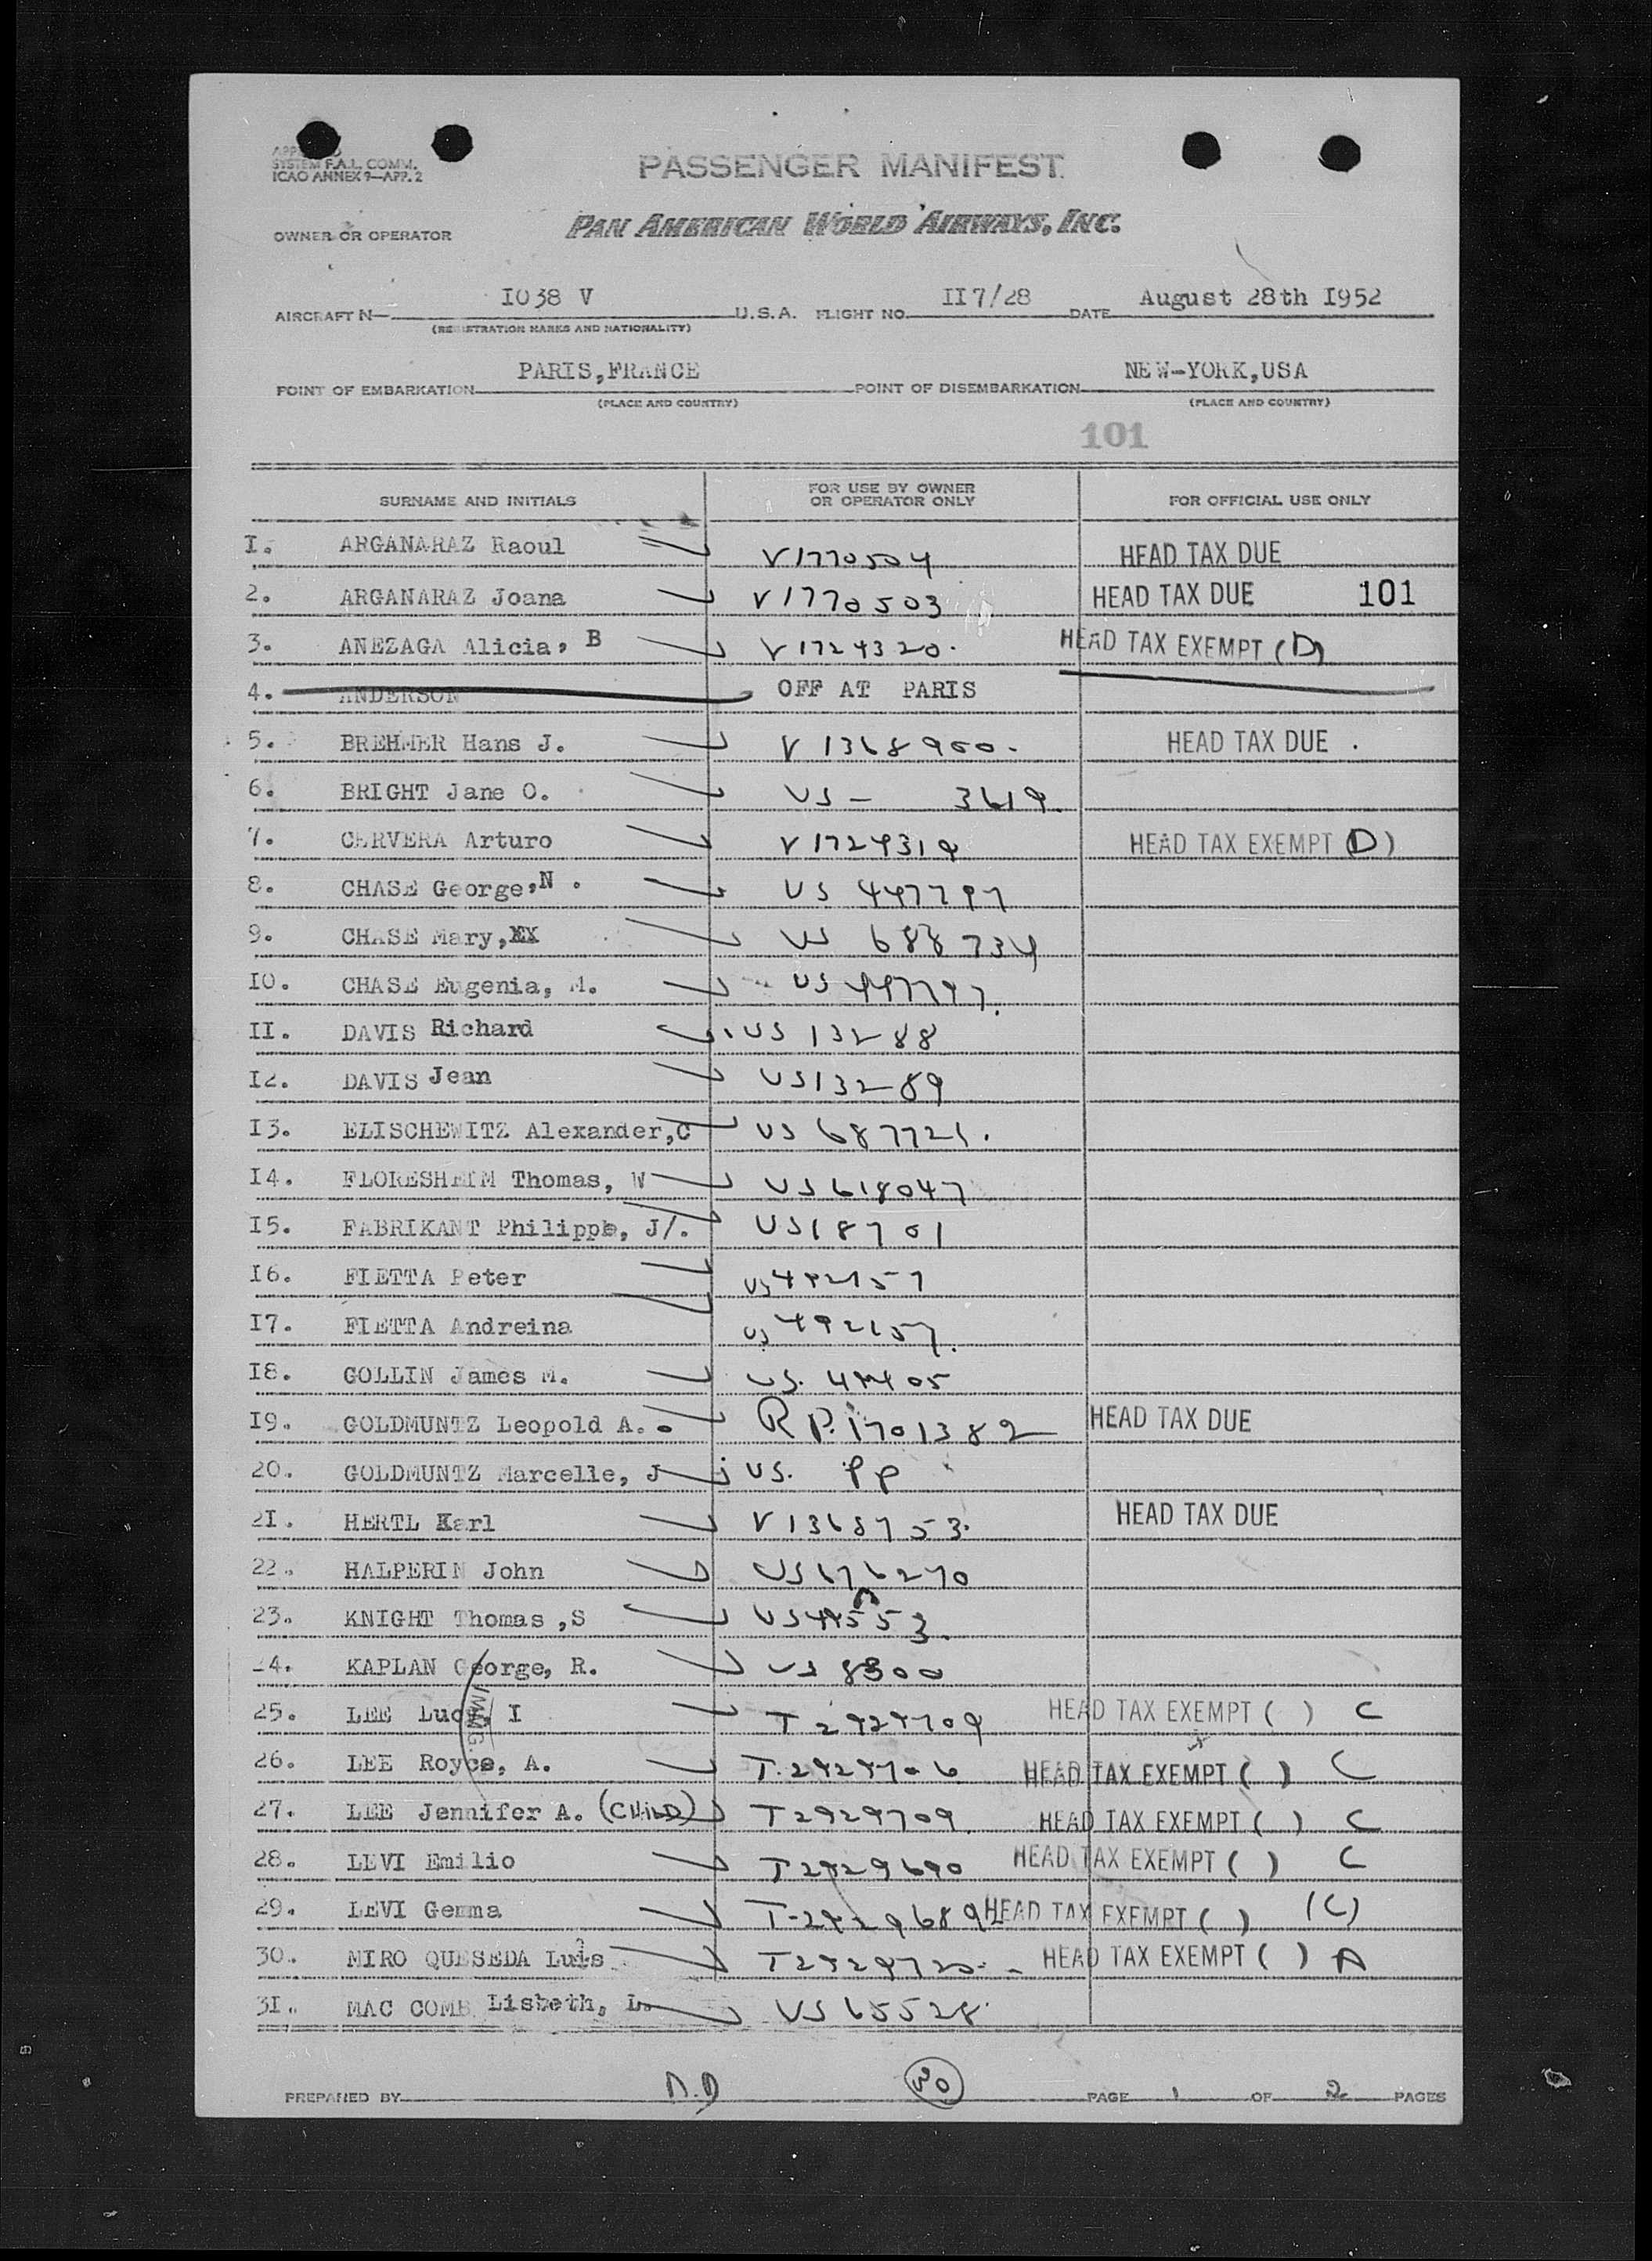 SYSTEM F.A.L. COMM.
ICAO ANNEX 9—APP. 2
PASSENGER MANIFEST
OWNER OR OPERATOR PAN AMERICAN WORLD AIRWAYS, INC.
AIRCRAFT N— I038 V U.S.A. FLIGHT NO. II7/28 DATE August 28th I952
(REGISTRATION MARKS AND NATIONALITY)
POINT OF EMBARKATION PARIS,FRANCE POINT OF DISEMBARKATION NEW-YORK,USA
(PLACE AND COUNTRY) (PLACE AND COUNTRY)
101
SURNAME AND INITIALS FOR USE BY OWNER OR OPERATOR ONLY FOR OFFICIAL USE ONLY
I. ARGANARAZ Raoul V1770504 HEAD TAX DUE
2. ARGANARAZ Joana V1770503 HEAD TAX DUE 101
3. ANEZAGA Alicia, B V1724320. HEAD TAX EXEMPT (D)
4. ANDERSON OFF AT PARIS
5. BREHMER Hans J. V 1368900. HEAD TAX DUE .
6. BRIGHT Jane O. US – 3619.
7. CERVERA Arturo V1724319 HEAD TAX EXEMPT (D)
8. CHASE George,N . US 447797
9. CHASE Mary,XX US 688734
I0. CHASE Eugenia, M. US 447797.
II. DAVIS Richard US 13288
I2. DAVIS Jean US13289
I3. ELISCHEWITZ Alexander,C US 687721.
I4. FLORESHEIM Thomas, W US618047
I5. FABRIKANT Philippe, J/. US18701
I6. FIETTA Peter US492157
I7. FIETTA Andreina US 492157.
I8. GOLLIN James M. US.
I9. GOLDMUNTZ Leopold A. RP.1701382 HEAD TAX DUE
20. GOLDMUNTZ Marcelle, J US. PP
2I. HERTL Karl V1368753. HEAD TAX DUE
22. HALPERIN John US676270
23. KNIGHT Thomas ,S
24. KAPLAN George, R. US 8300
25. LEE Lucy, I T 2929709 HEAD TAX EXEMPT ( ) C
26. LEE Royce, A. T.2929706 HEAD TAX EXEMPT ( ) C
27. LEE Jennifer A. (CHILD) T2929709 HEAD TAX EXEMPT ( ) C
28. LEVI Emilio T2929690 HEAD TAX EXEMPT ( ) C
29. LEVI Gemma T-2929689 HEAD TAX EXEMPT ( ) (C)
30. MIRO QUESEDA Luis T2929720. HEAD TAX EXEMPT ( ) A
3I. MAC COMB Lisbeth, L. US65528.
IMMIG.
PREPARED BY 30 PAGE 1 OF 2 PAGES